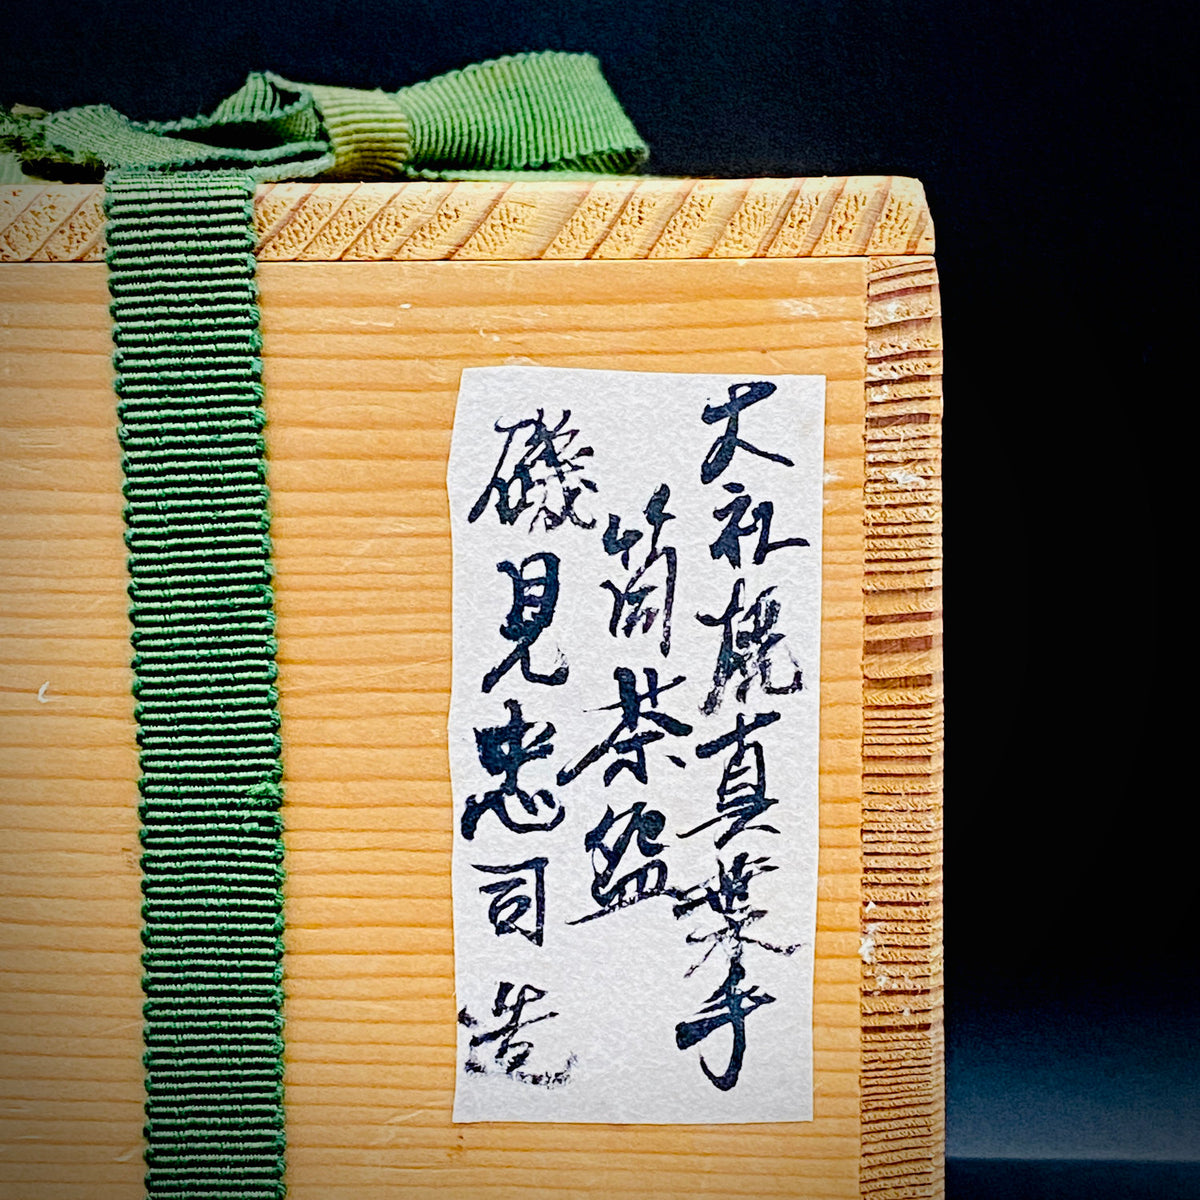 大社焼真葉手
筒茶盌
磯見忠司造